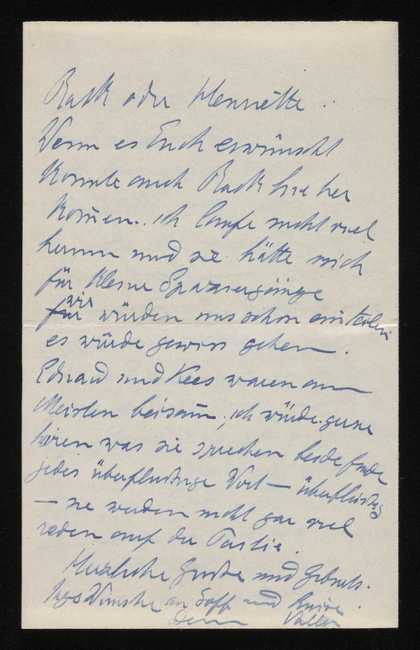 Bask oder Henriëtte.
Wenn es Euch erwünscht
könnte auch Bask hieher
kom̅en. ich laufe nicht viel
herum und sie hätte mich
für kleine Spaziergänge
wir würden uns schon einteilen
es würde gewiss gehen.
Eduard und Kees waren am
meisten beisam̅, ich würde gerne
hören was sie sprechen beide finde
jedes überflüssige Wort — überflüssig
— sie werden nicht gar viel
reden auf der
Herzliche Grüße und Geburts-
tagswünsche an und